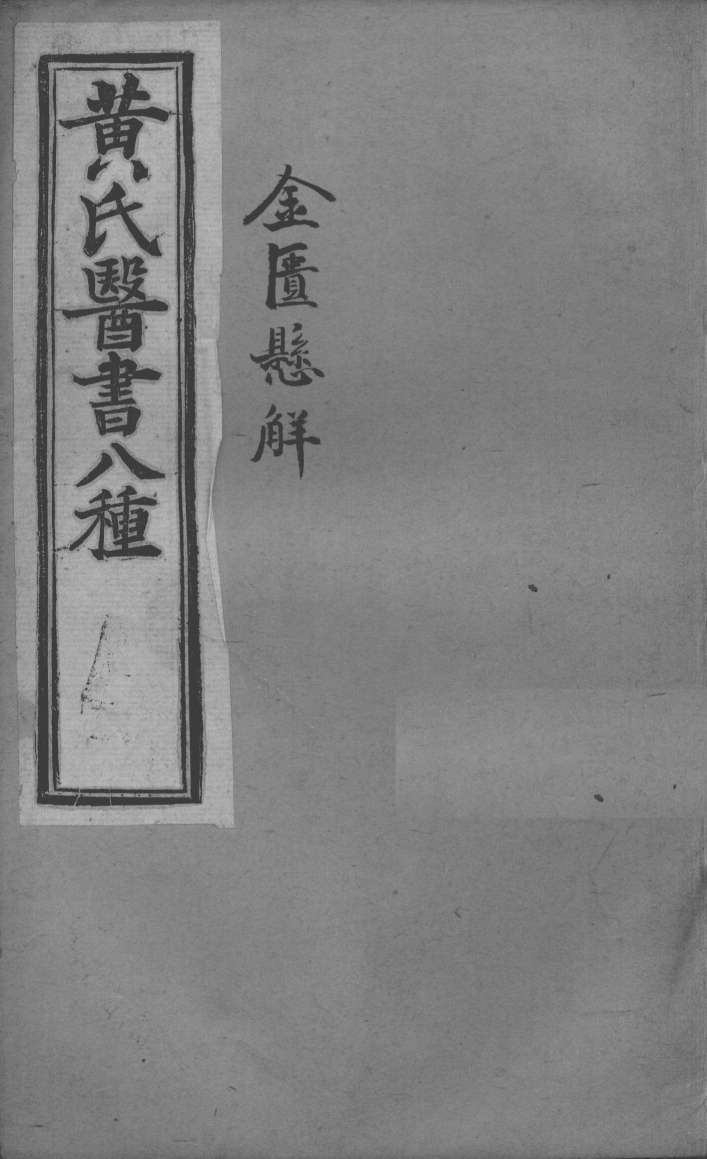 金匱懸解
黃氏醫書八種